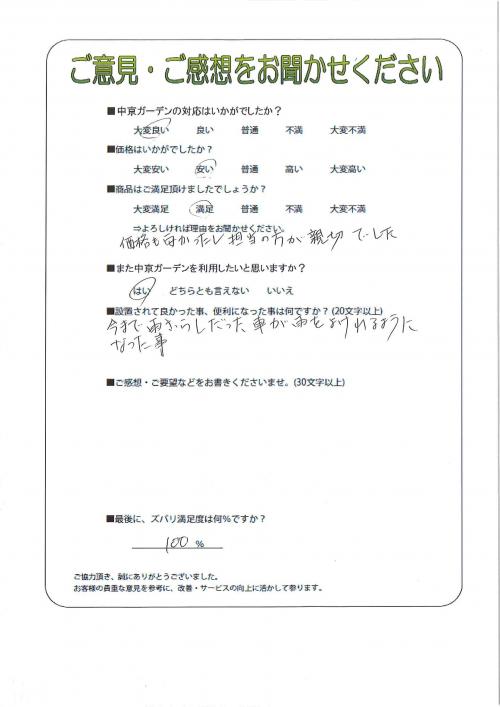 ご意見・ご感想をお聞かせください
■中京ガーデンの対応はいかがでしたか？
大変良い 良い 普通 不満 大変不満
■価格はいかがでしたか？
大変安い 安い 普通 高い 大変高い
■商品はご満足頂けましたでしょうか？
大変満足 満足 普通 不満 大変不満
⇒よろしければ理由をお聞かせください。
価格も安かったし担当の方が親切でした
■また中京ガーデンを利用したいと思いますか？
はい どちらとも言えない いいえ
■設置されて良かった事、便利になった事は何ですか？(20文字以上)
今まで雨ざらしだった車が雨をよけれるように
なった事
■ご感想・ご要望などをお書きくださいませ。(30文字以上)
■最後に、ズバリ満足度は何%ですか？
100 %
ご協力頂き、誠にありがとうございました。
お客様の貴重な意見を参考に、改善・サービスの向上に活かして参ります。